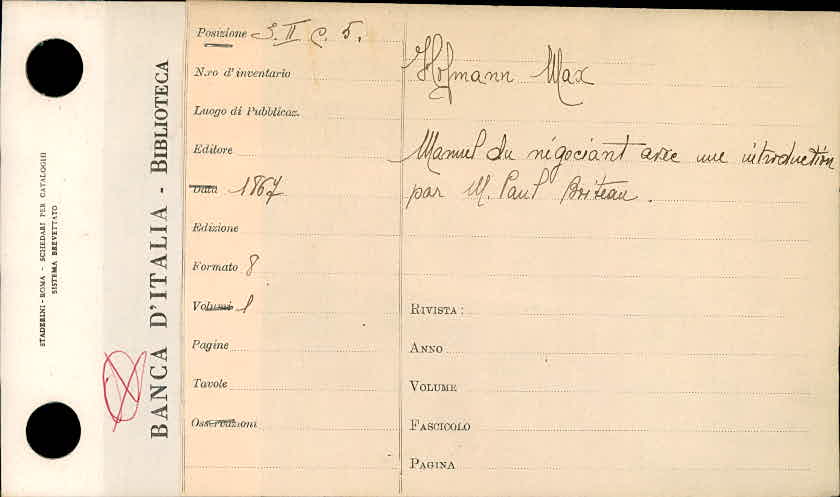 STADERINI - ROMA - SCHEDARI PER CATALOGHI
SISTEMA BREVETTATO
BANCA D'ITALIA - BIBLIOTECA
Posizione S. II C. 5.
N.ro d'inventario
Luogo di Pubblicaz.
Editore
Data 1867
Edizione
Formato 8
Volumi 1
Pagine
Tavole
Osservazioni
Hofmann Max
Manuel du négociant avec une introduction
par M. Paul Boiteau.
RIVISTA:
ANNO
VOLUME
FASCICOLO
PAGINA